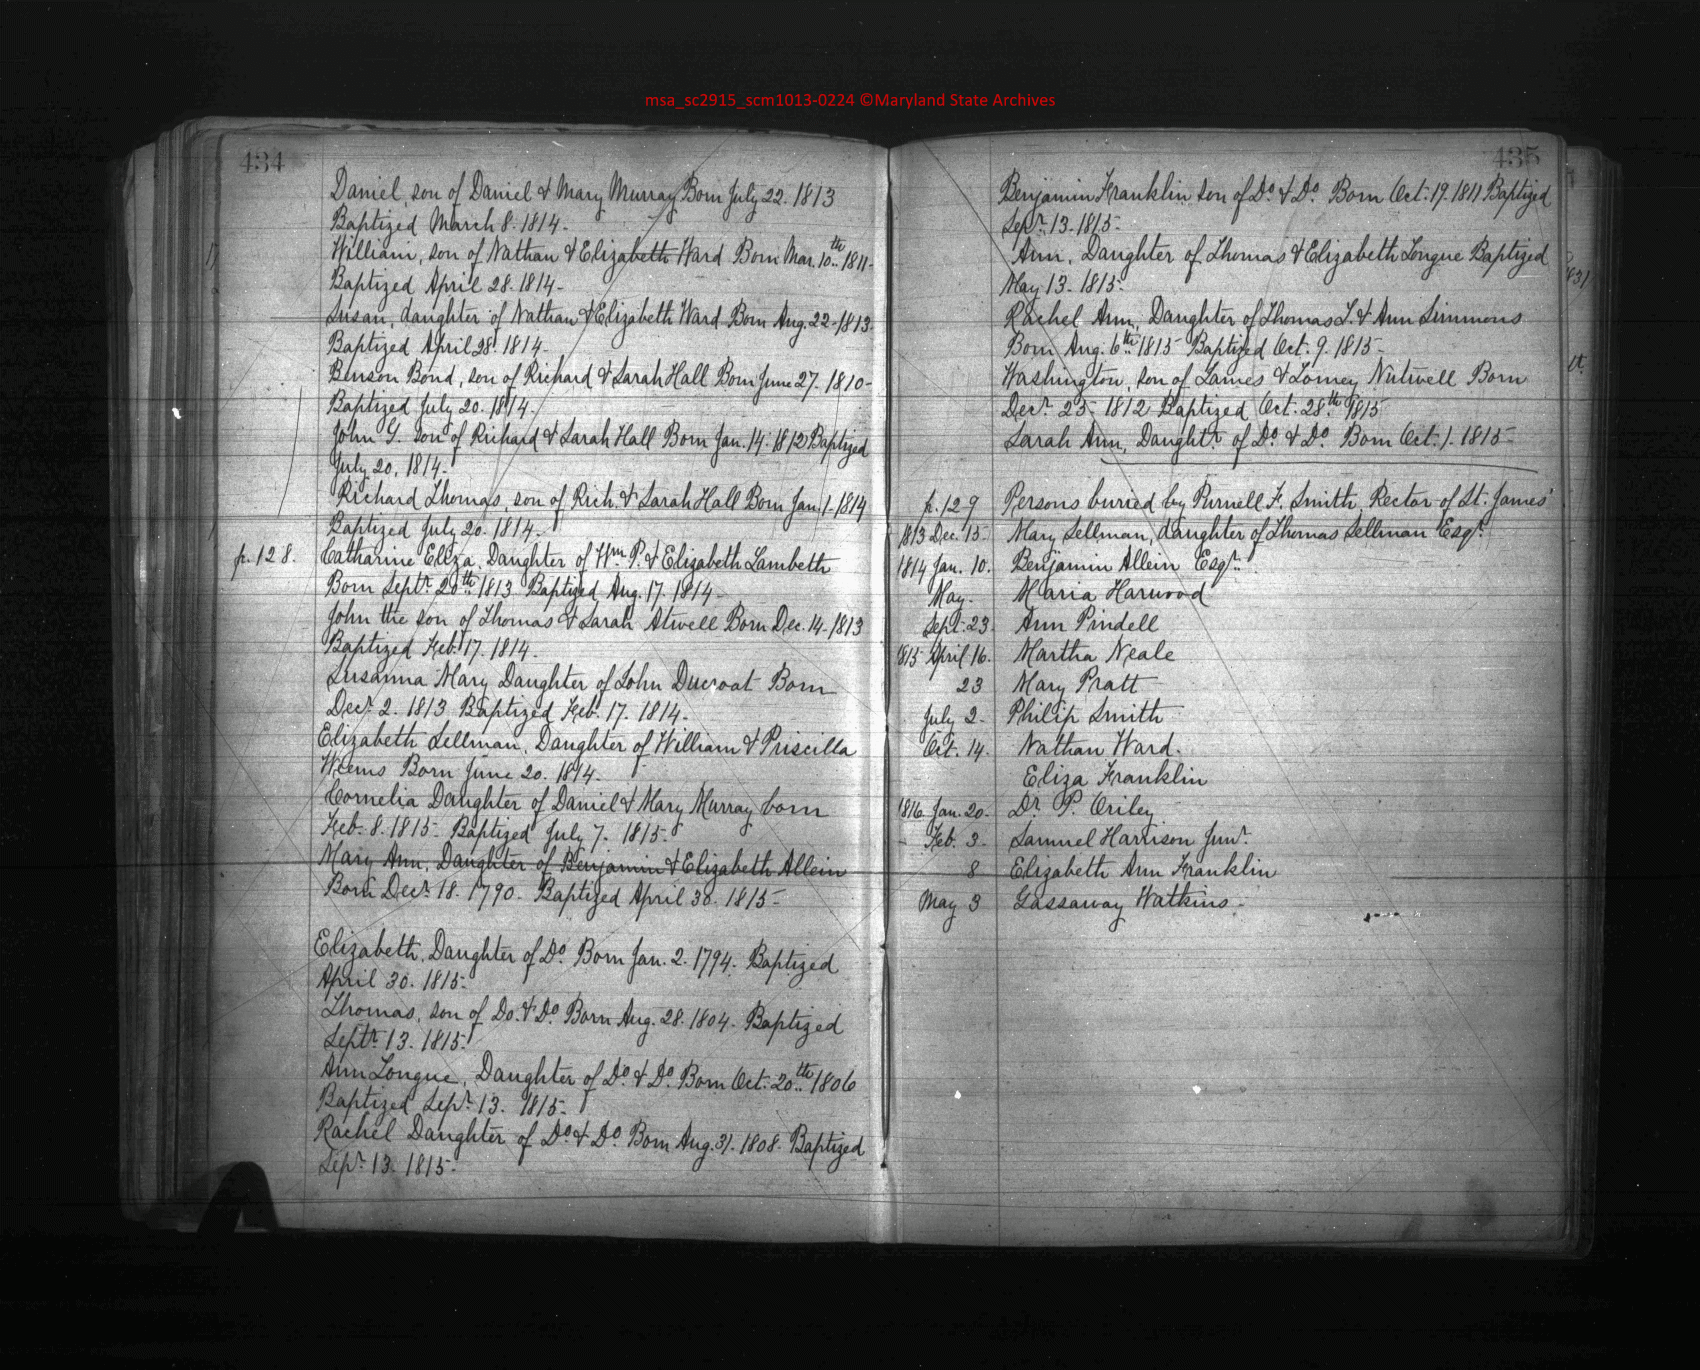 msa_sc2915_scm1013-0224 ©Maryland State Archives
434
Daniel, son of Daniel & Mary Murray Born July 22. 1813
Baptized March 8. 1814.
William, son of Nathan & Elizabeth Ward Born Mar. 10th 1811-
Baptized April 28. 1814-
Susan, daughter of Nathan & Elizabeth Ward Born Aug. 22-1813.
Baptized April 28. 1814.
Benson Bond, son of Richard & Sarah Hall Born June 27. 1810-
Baptized July 20. 1814.
John G. son of Richard & Sarah Hall Born Jan. 14. 1812 Baptized
July 20. 1814.
Richard Thomas, son of Rich. & Sarah Hall Born Jan. 1-1814
Baptized July 20. 1814.
p. 128. Catharine Eliza, Daughter of Wm P. & Elizabeth Lambeth
Born Septr 20th 1813 Baptized Aug. 17. 1814-
John the son of Thomas & Sarah Atwell Born Dec. 14-1813
Baptized Feb. 17. 1814.
Susanna Mary Daughter of John Ducroat Born
Decr 2. 1813 Baptized Feb. 17. 1814.
Elizabeth Sellman, Daughter of William & Priscilla
Weems Born June 20. 1814.
Cornelia Daughter of Daniel & Mary Murray born
Feb. 8. 1815. Baptized July 7. 1815.
Mary Ann, Daughter of Benjamin & Elizabeth Allein
Born Decr 18. 1790- Baptized April 30. 1815-
Elizabeth, Daughter of Do Born Jan. 2. 1794. Baptized
April 30. 1815.
Thomas, son of Do. & Do Born Aug. 28. 1804- Baptized
Septr 13. 1815.
Ann Longue, Daughter of Do & Do Born Oct. 20th 1806
Baptized Sepr 13. 1815.
Rachel Daughter of Do & Do Born Aug. 31. 1808. Baptized
Sepr 13. 1815-
435
Benjamin Franklin son of Do & Do. Born Oct. 19. 1811 Baptized
Sepr 13. 1815-
Ann, Daughter of Thomas & Elizabeth Longue Baptized
May 13. 1815.
Rachel Ann, Daughter of Thomas T. & Ann Simmons
Born Aug. 6th 1815 Baptized Oct. 9. 1815-
Washington, son of James & Nutwell Born
Decr 25- 1812 Baptized Oct. 28th 1815
Sarah Ann, Daughtr of Do & Do. Born Oct. 1. 1815-
p. 129 Persons buried by Purnell F. Smith, Rector of St. James'
1813 Dec. 15- Mary Sellman, daughter of Thomas Sellman Esqr
1814 Jan. 10. Benjamin Allein Esqr
May. Maria Harwood
Sept. 23. Ann Pindell
1815 April 16. Martha Neale
23 Mary Pratt
July 2- Philip Smith
Oct. 14. Nathan Ward.
Eliza Franklin
1816 Jan. 20- Dr P. Criley
Feb. 3- Samuel Harrison Junr
8 Elizabeth Ann Franklin
May 3 Gassaway Watkins-